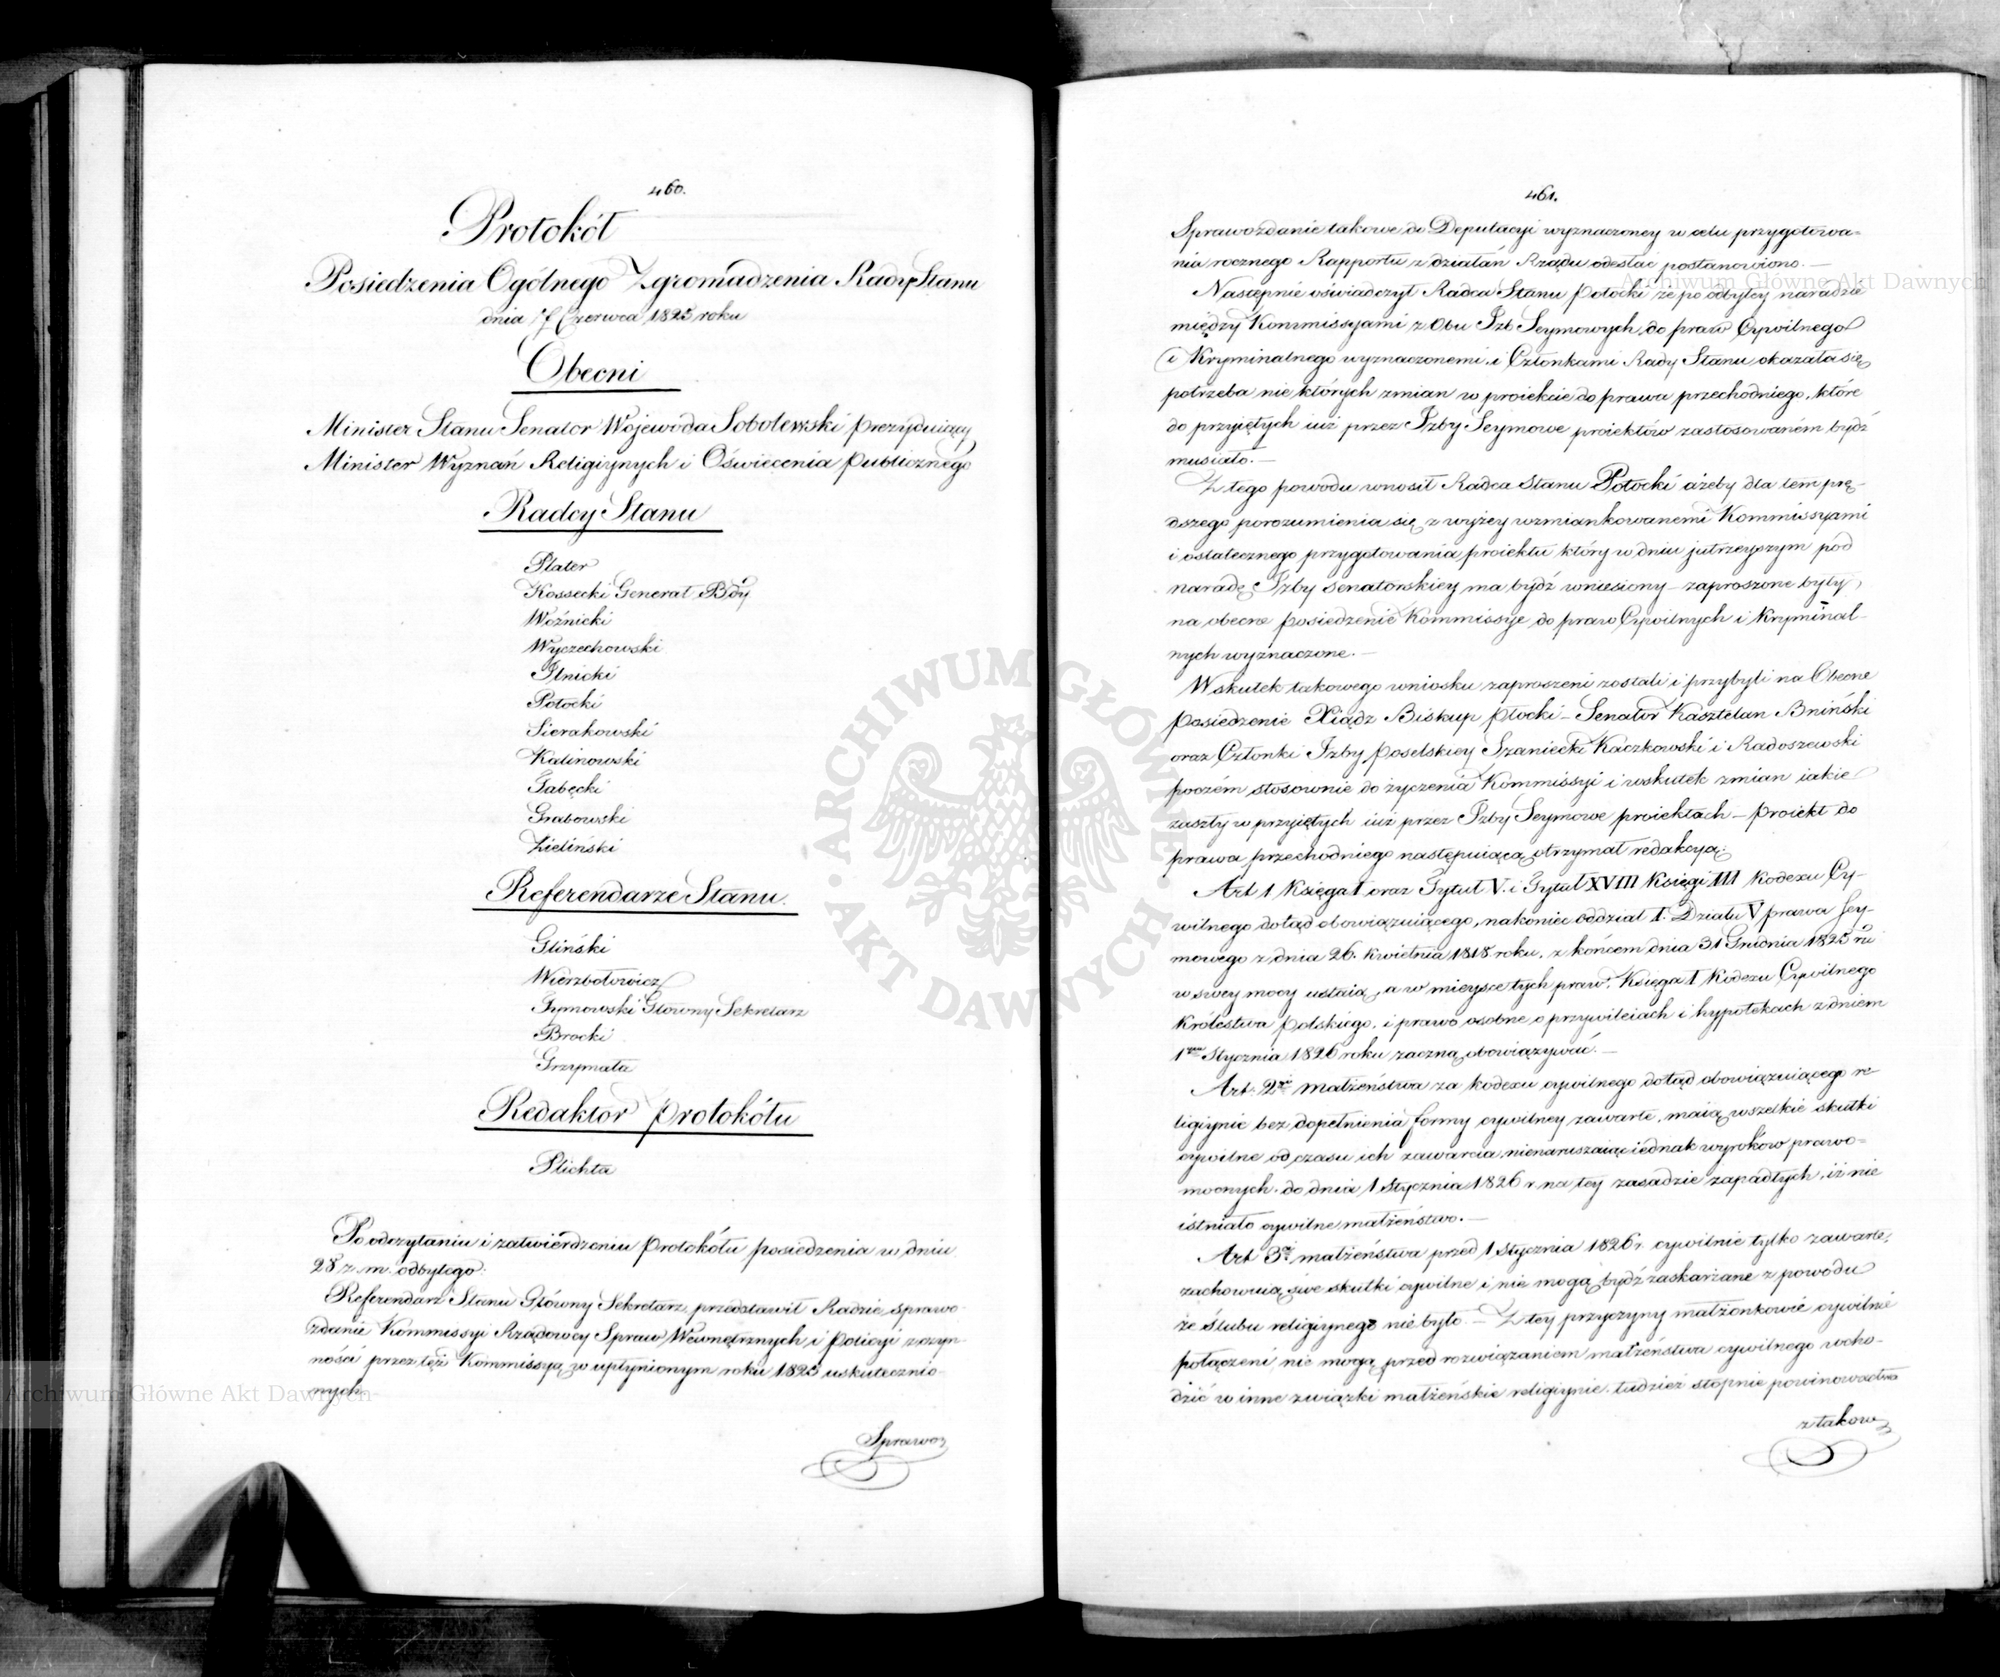 460.
Protokół
Posiedzenia Ogólnego Zgromadzenia Rady Stanu
dnia Czerwca 1825 roku
Obecni
Minister Stanu Senator Wojewoda Sobolewski prezyduiący
Minister Wyznań Religiynych i Oświecenia publicznego
Radcy Stanu
Plater
Kossecki Generał Bdy
Woźnicki
Wyczechowski
Potocki
Sierakowski
Kalinowski
Grabowski
Zieliński
Referendarze Stanu.
Gliński
Wierzbołowicz
Tymowski Główny Sekretarz
Brocki
Grzymała
Redaktor protokółu
Plichta
Po odczytaniu i zatwierdzeniu protokółu posiedzenia w dniu
28 z. m. odbytego:
Referendarz Stanu Główny Sekretarz przedstawił Radzie sprawo-
zdanie Kommissyi Rządowey Spraw Wewnętrznych i policyi z czyn-
ności przez też Kommissyą w upłynionym roku uskutecznio-
nych.
Sprawoz
461.
Sprawozdanie takowe do Deputacyi wyznaczoney w celu przygotowa=
nia rocznego Rapportu z działań Rządu odesłać postanowiono. —
Następnie oświadczył Radca Stanu Potocki że po odbytey naradzie
między Kommissyami z Obu Izb Seymowych, do praw Cywilnego
i Kryminalnego wyznaczonemi, i Członkami Rady Stanu okazała się
potrzeba nie których zmian w proiekcie do prawa przechodniego, które
do przyiętych iuż przez Izby Seymowe proiektów zastosowaném bydź
musiało. —
Z tego powodu wnosił Radca Stanu Potocki ażeby dla tem prę-
dszego porozumienia się z wyżey wzmiankowanemi Kommissyami
i ostatecznego przygotowania proiektu który w dniu jutrzeyszym pod
naradę Izby Senatorskiey ma bydź wniesiony zaproszone były
na obecne posiedzenie Kommissye do praw Cywilnych i Kryminal-
nych wyznaczone. —
W skutek takowego wniosku zaproszeni zostali i przybyli na Obecne
posiedzenie Xiądz Biskup Płocki – Senator Kasztelan Bniński
oraz Członki Izby poselskiey Szaniecki Kaczkowski i Radoszewski
poczém stosownie do życzenia Kommissyi i wskutek zmian iakie
zaszły w przyiętych iuż przez Izby Seymowe proiektach – proiekt do
prawa przechodniego następuiącą otrzymał redakcyą:
Art 1 Księga I oraz Tytuł V. i Tytuł XVIII Księgi III Kodexu Cy-
wilnego dotąd obowiązuiącego, nakoniec oddział I. Działu V prawa Sey-
mowego z dnia 26. Kwietnia 1818 roku, z końcem dnia 31 Grudnia 1825 ru
w swey mocy ustaią, a w mieysce tych praw, Księga I Kodexu Cywilnego
Królestwa Polskiego, i prawo osobne o przywileiach i hypotekach z dniem
1 Stycznia 1826 roku zaczną obowiązywać. —
Art. 2 małżeństwa za kodexu cywilnego dotąd obowiązuiącego re-
ligiynie bez dopełnienia formy cywilney zawarte, maią wszelkie skutki
cywilne od czasu ich zawarcia, nienaruszaiąc iednak wyroków prawo=
mocnych, do dnia 1 Stycznia 1826 r na tey zasadzie zapadłych, iż nie
istniało cywilne małżeństwo. —
Art 3 małżeństwa przed 1 Stycznia 1826 r. cywilnie tylko zawarte,
zachowuią swe skutki cywilne i nie mogą bydź zaskarżane z powodu
że ślubu religiynego nie było. – Z tey przyczyny małżonkowie cywilnie
połączeni nie mogą przed rozwiązaniem małżeństwa cywilnego wcho-
dzić w inne związki małżeńskie religiynie, tudzież stopnie powinowactwa
z takow
Archiwum Główne Akt Dawnych
Archiwum Główne Akt Dawnych
ARCHIWUM GŁÓWNE
AKT DAWNYCH